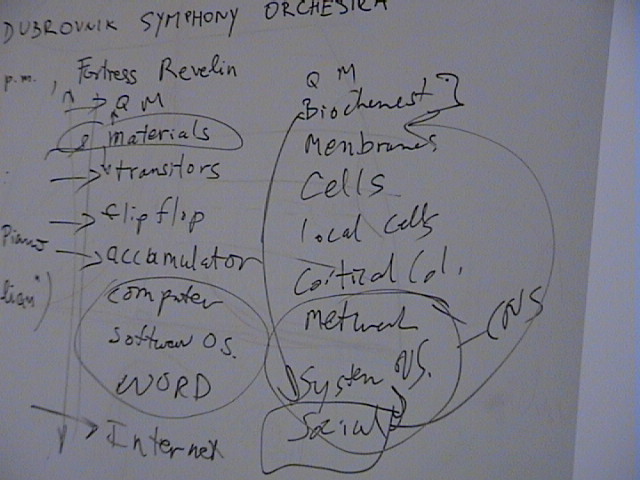 DUBROVNIK SYMPHONY ORCHESTRA
p.m., Fortress Revelin
QM
materials
transitors
flip flop
Piano
accamulator
lian")
computer
Software OS.
WORD
Internex
Q M
Biochemest
Menbranes
Cells
local cells
Cortical Col.
Network
System NS.
Social
CNS